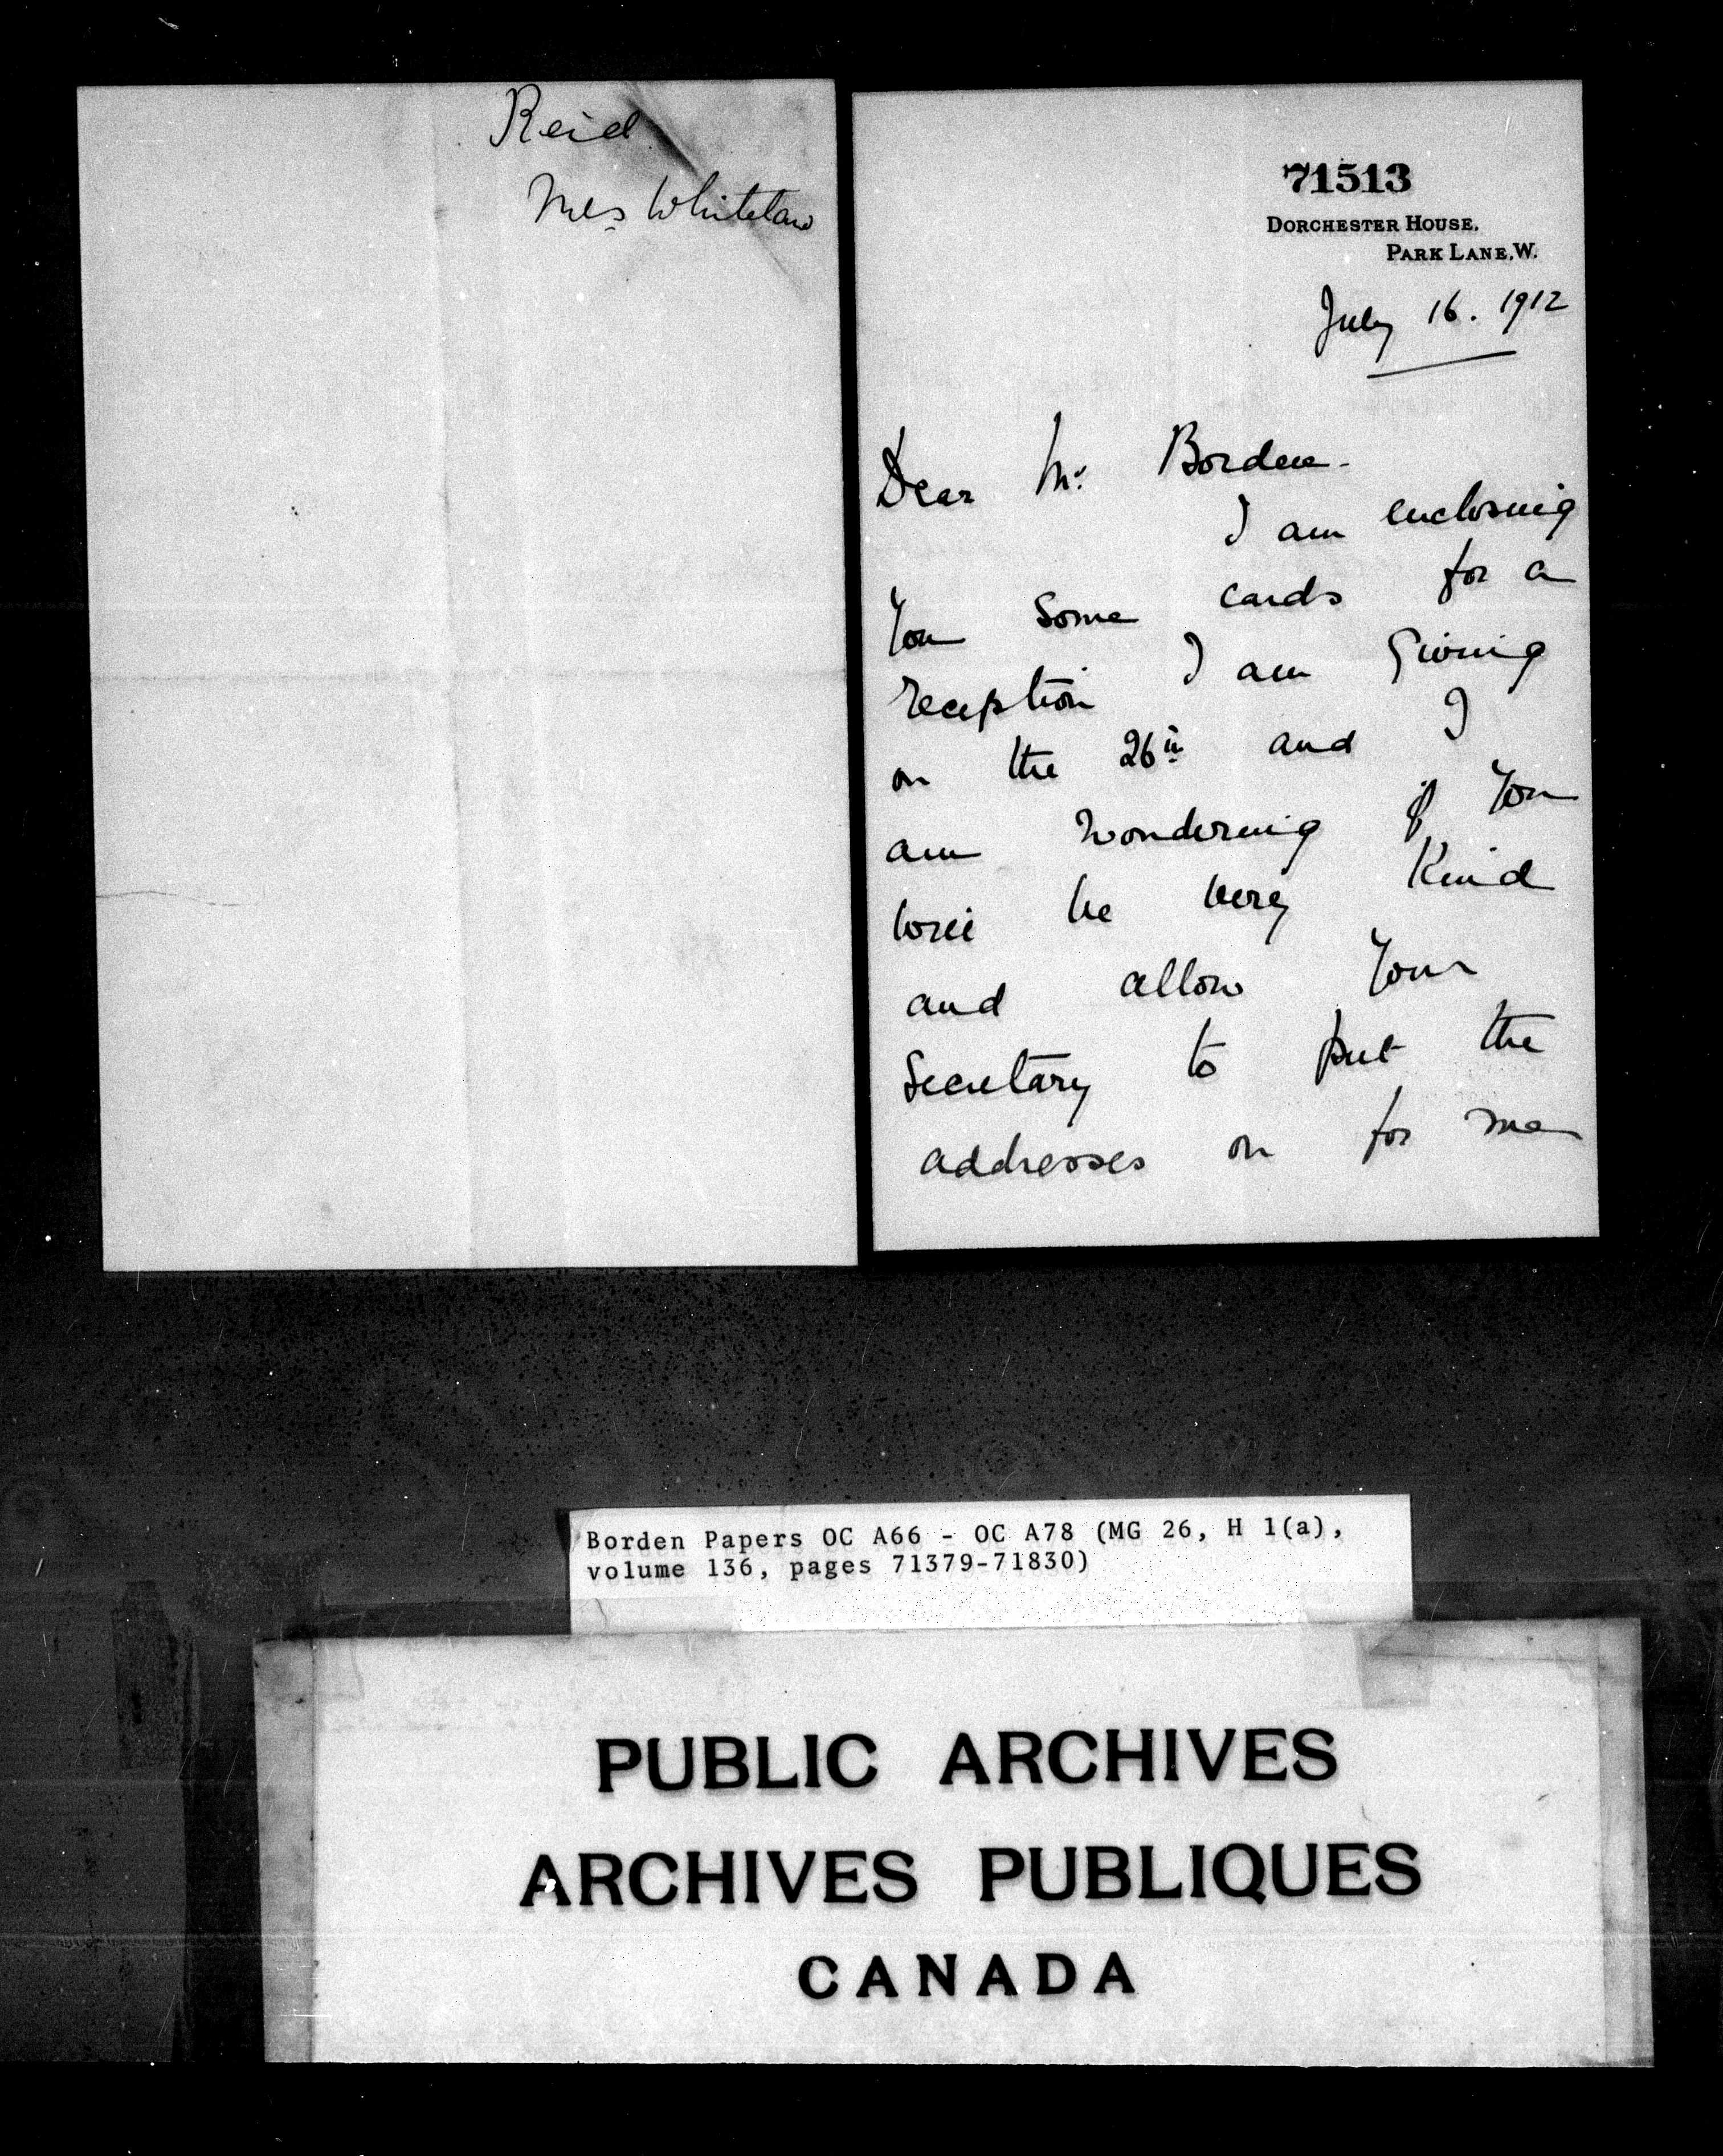 Reid
Mrs Whitelaw
71513
DORCHESTER HOUSE,
PARK LANE, W.
July 16. 1912
Dear Mr. Borden -
I am enclosing
You some cards for a
reception I am giving
on the 26th and I
am wondering if You
will be very Kind
and allow Your
Secretary to put the
addresses on for me
Borden Papers OC A66 - OC A78 (MG 26, H 1(a),
volume 136, pages 71379-71830)
PUBLIC ARCHIVES
ARCHIVES PUBLIQUES
CANADA